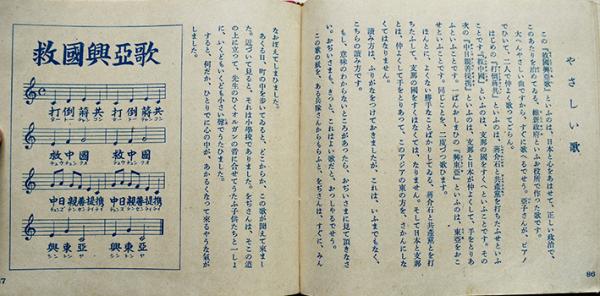 やさしい歌
この『救國興亞歌』といふのは、日本と心をあはせて、正しい政治で、
このあたりを治める、維新政府といふお役所で作つた歌です。
大へんやさしい曲ですから、すぐに歌へるでせう。亞子さんが、ピアノ
でひいて、二人で仲よく歌つてごらん。
はじめの『打倒蔣共』といふのは、蔣介石と共產黨を打ちたふせといふ
ことです。『救中國』といふのは、支那の國をすくへといふことです。その
次の『中日親善提携』といふのは、支那と日本が仲よくして、手をとりあ
ふといふことです。一ばんおしまひの『興東亞』といふのは、東亞をおこ
せといふことです。同じことを、二度づつ歌ひます。
ほんとに、よくない勝手なことばかりしてゐる、蔣介石と共產黨とを打
ちたふして、支那の國をすくはなくては、なりません。そして日本と支那
とは、仲よくして手をとりあつて、このアジアの東の方を、さかんにしな
くてはなりません。
讀み方は、ふりがなをつけておきましたが、これは、いふまでもなく、
こちらの讀み方です。
もし、意味のわからないところがあつたら、おぢいさまに見て頂きなさ
い。おぢいさまも、きつと、これはよい歌だと、おつしやるでせう。
この歌の紙を、ある兵隊さんからもらふと、をぢさんは、すぐに、みん
86
なおぼえてしまひました。
あくる日、町の中を歩いてゐると、どこからか、この歌が聞えて來まし
た。近づいて見ると、それは小學校でありました。をぢさんは、そこの道
の上に立つて、先生のひくオルガンの音に合せてうたふ子供たちと一しよ
に、ふくどもいくども小さい聲でうたひました。
すると、何だか、ひとりでに心の中が、あかるくなつて來るやうな氣が
しました。
救國興亞歌
打倒蔣共 打倒蔣共
救中國 救中國
中日親善提携 中日親善提携
興東亞 興東亞